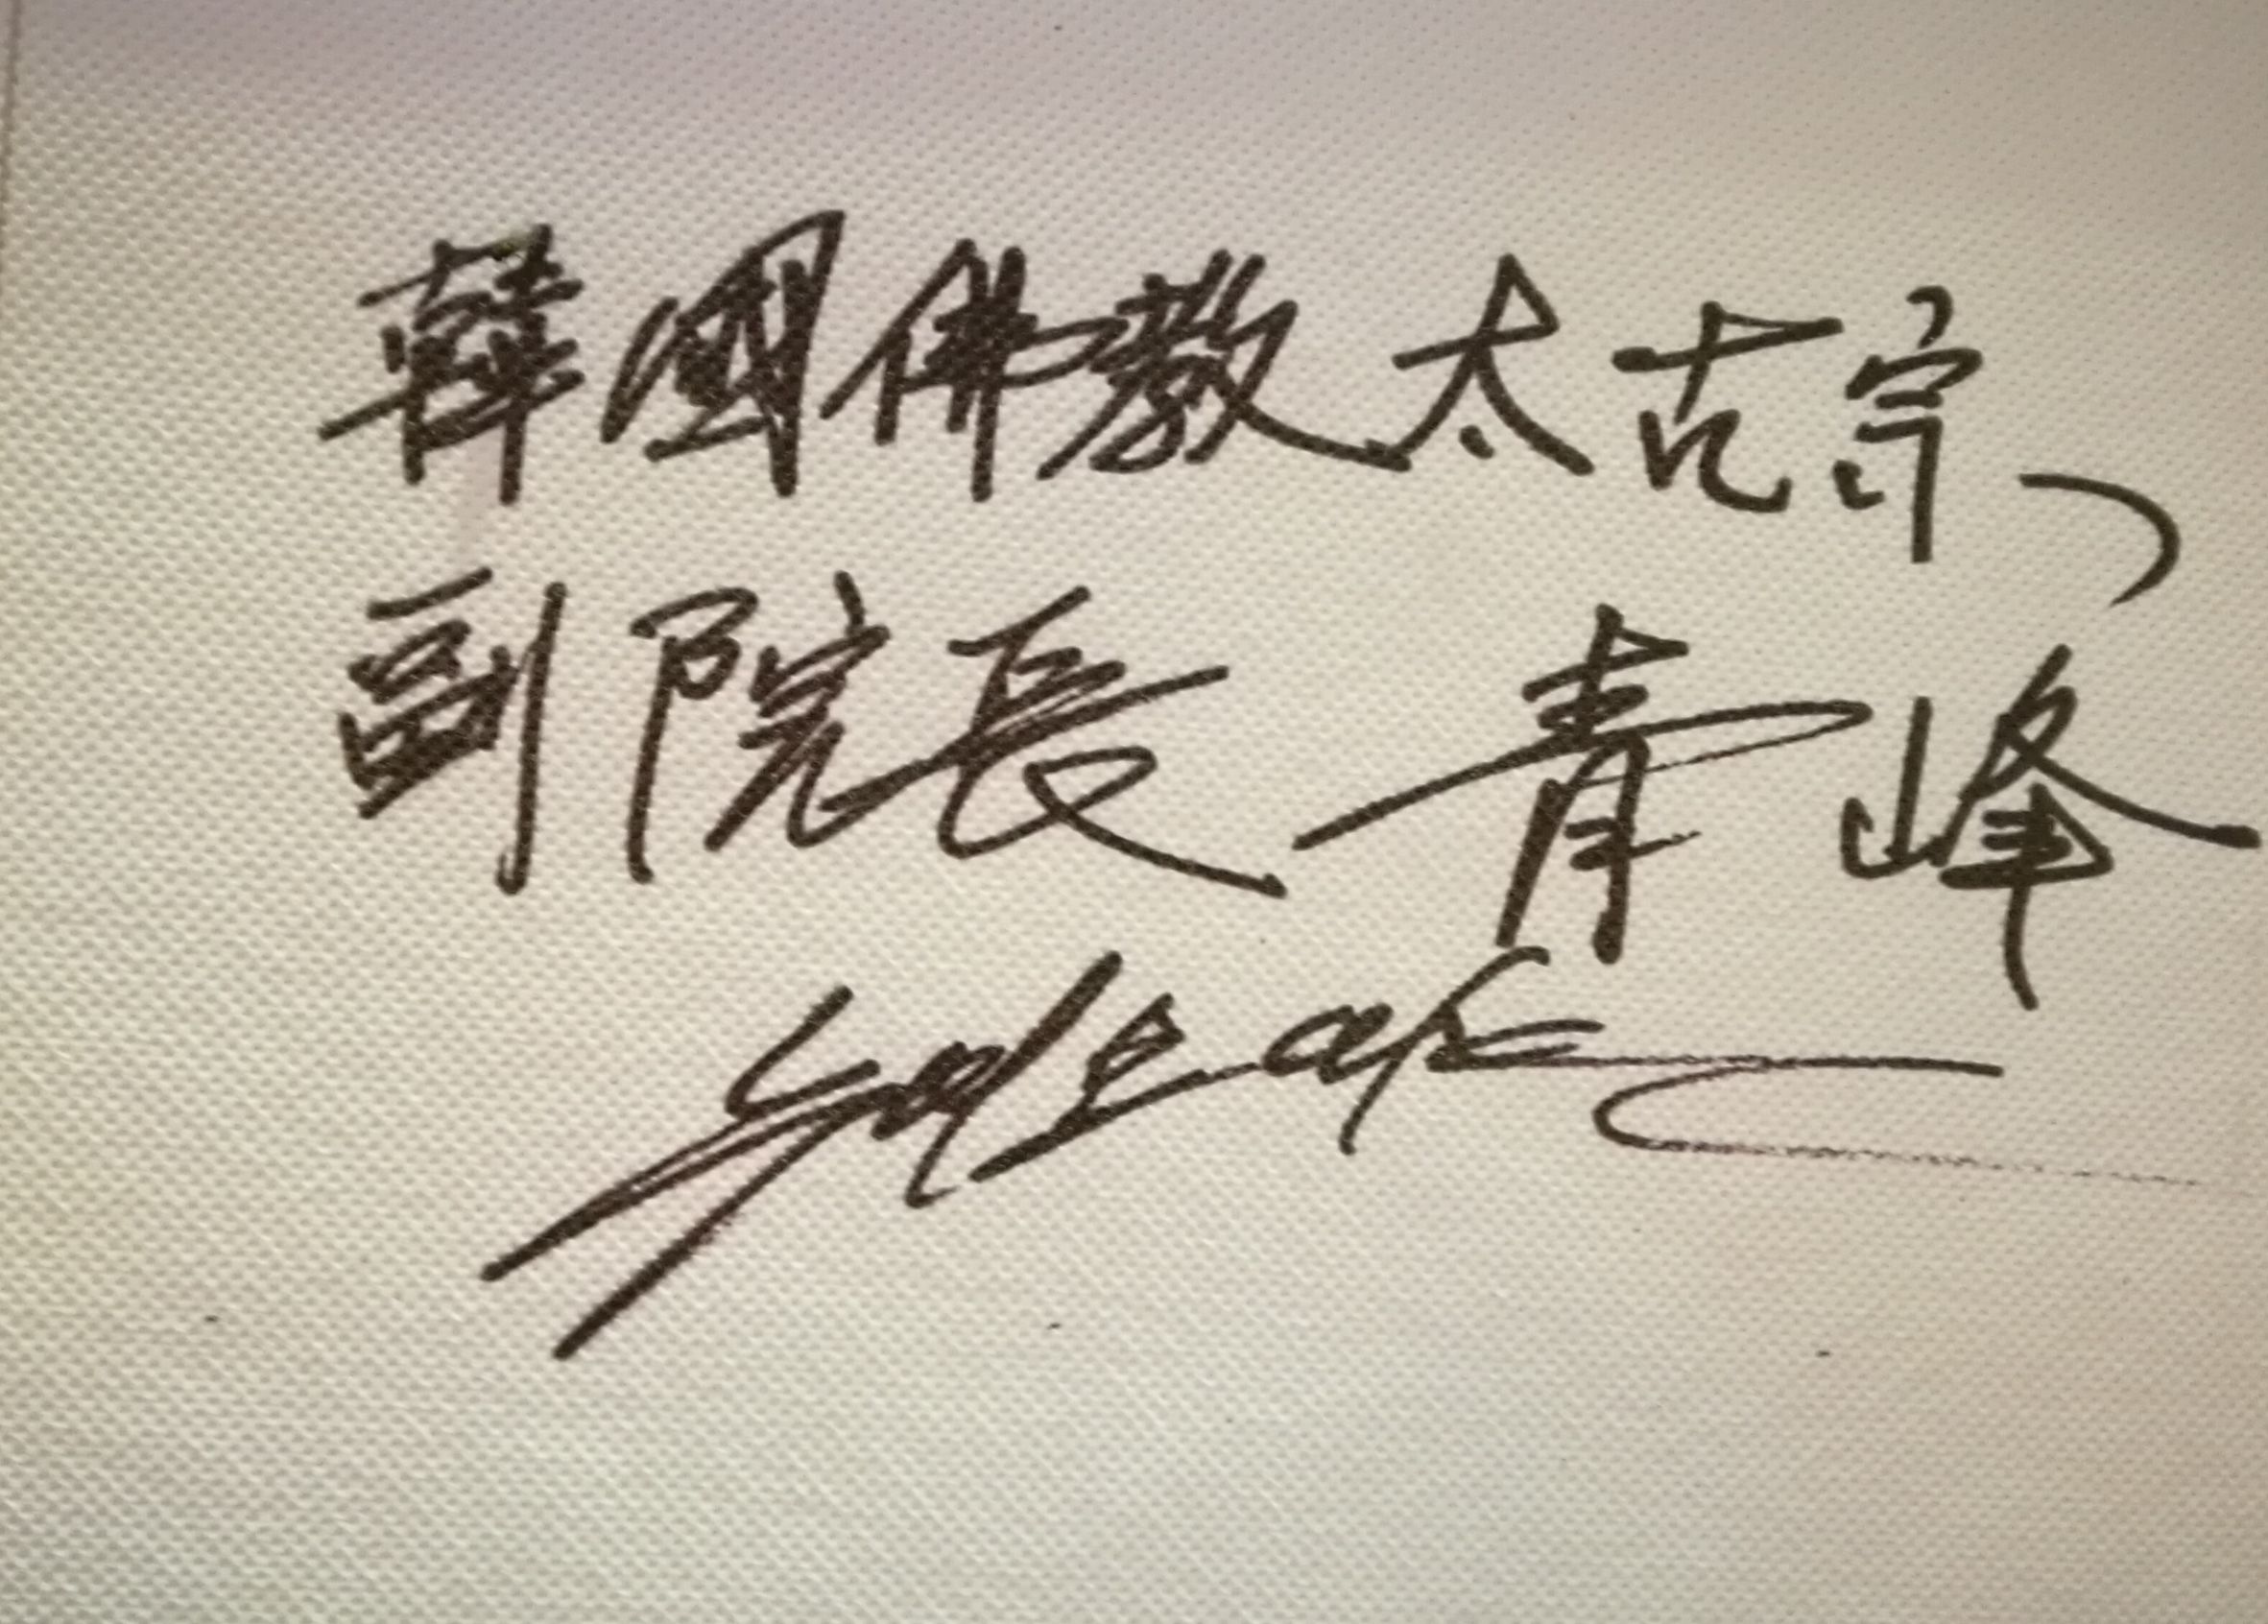 韓國佛教太古宗
副院長 青峰